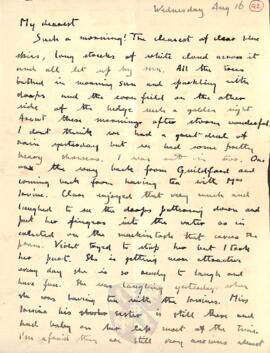 Wednesday Aug 16
42
My dearest
Such a morning! The clearest of clear blue
skies, long streaks of white cloud across it
and all lit up by sun. All the trees
bathed in morning sun and sparkling with
drops and the corn field on the other
side of the hedge such a golden sight.
Arent these mornings after storms wonderful.
I don't think we had a great deal of
rain yesterday but we had some pretty
heavy showers. I was out in two. One
was the way back from Guildford and
coming back from having tea with Mrs
Irvine. Clare enjoyed that very much and
laughed to see the drops pattering down and
put her fingers into the water as it
collected on the mackintosh that covers the
pram. Violet tried to stop her but I took
her part. She is getting more attractive
every day she is so ready to laugh and
have fun. She was laughing yesterday when
she was having tea with the Irvines. Miss
Irvine his sister is still there and
had baby on her lap most of the time.
I'm afraid they are still very anxious about